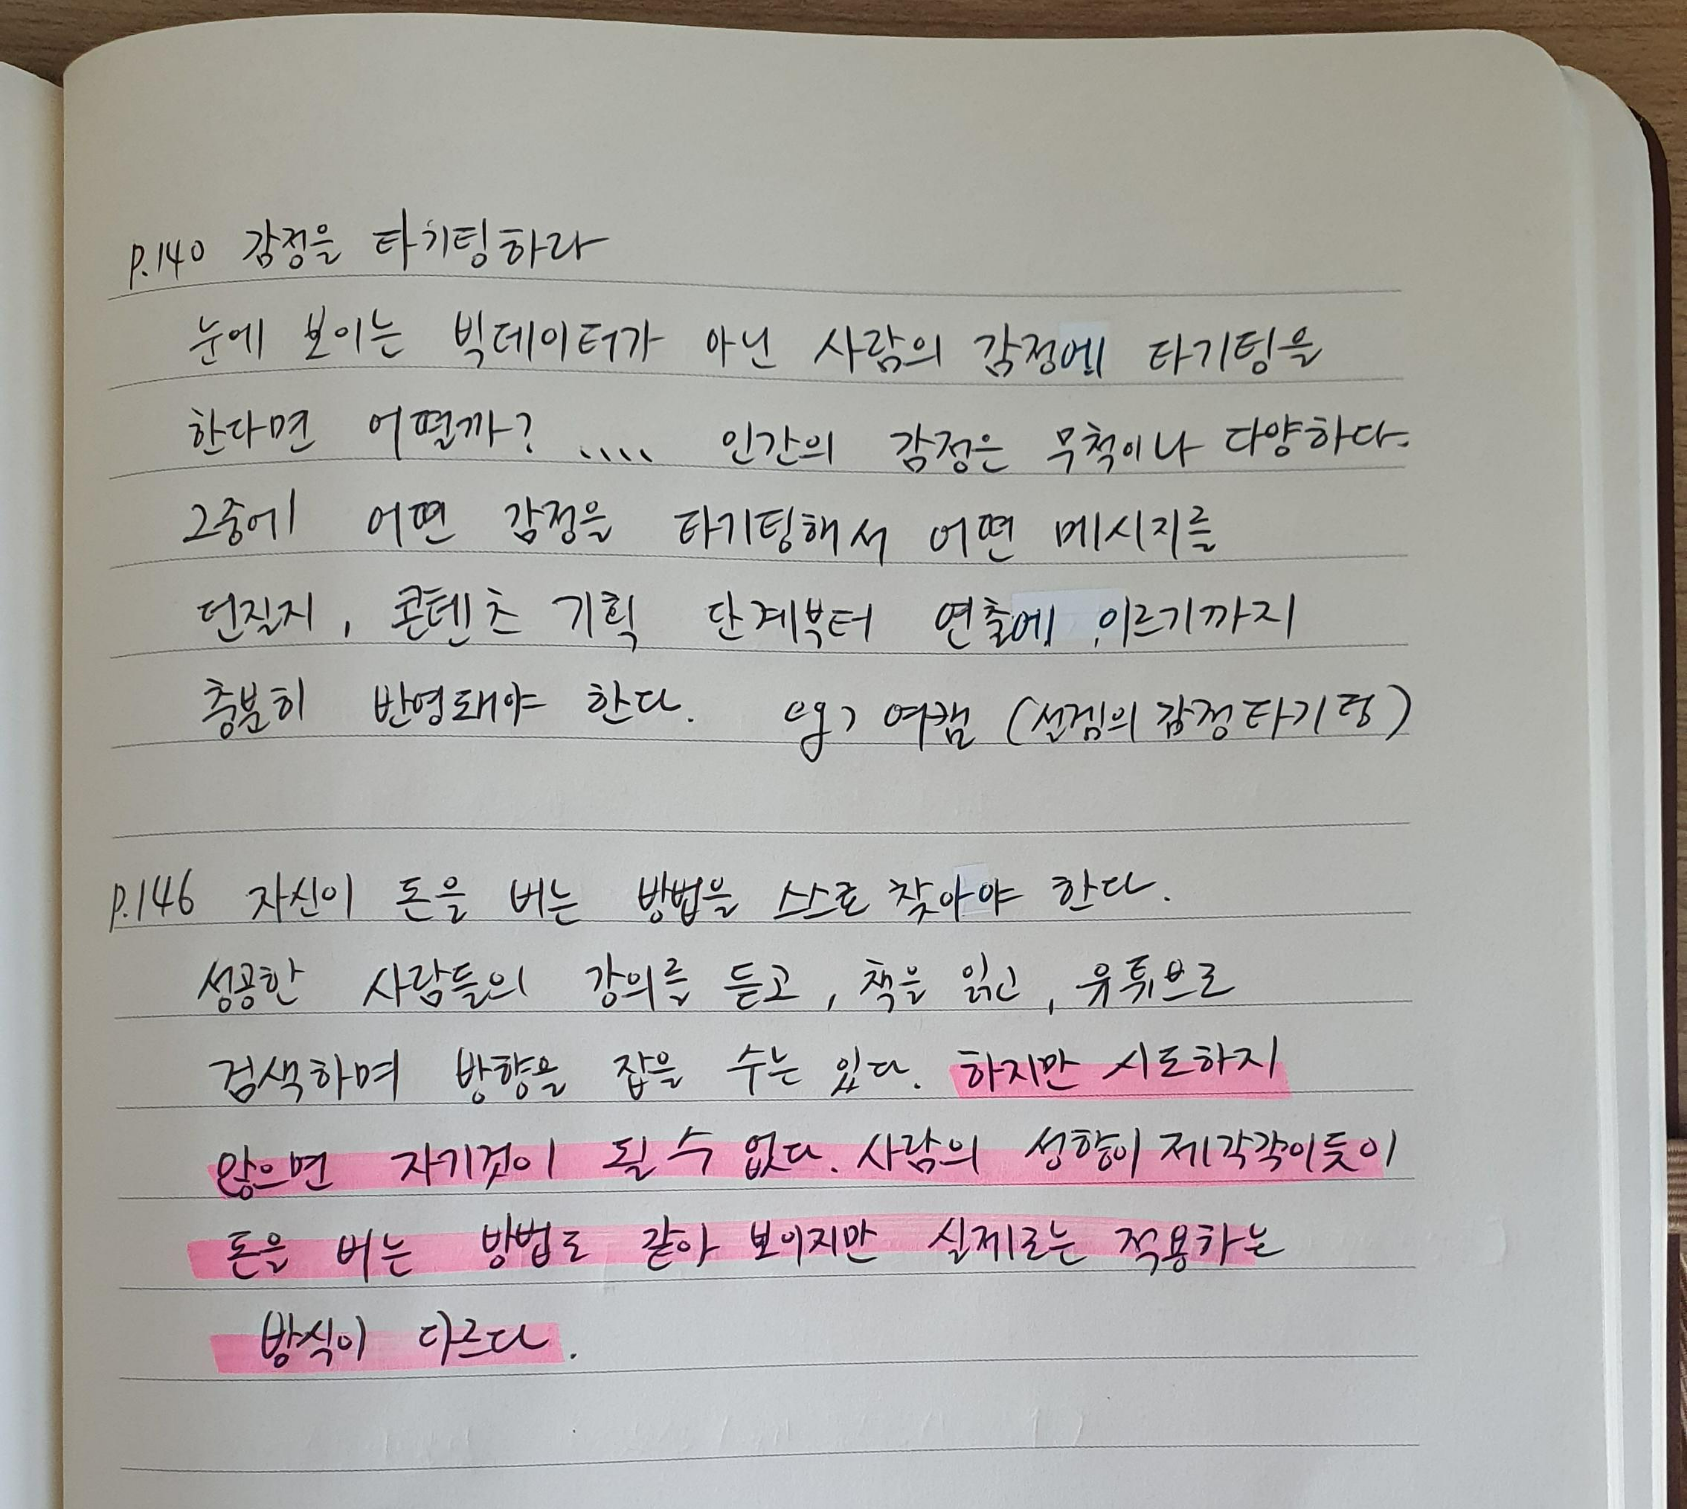 p.140 감정을 타기팅하라
눈에 보이는 빅데이터가 아닌 사람의 감정에 타기팅을
한다면 어떨까? .... 인간의 감정은 무척이나 다양하다.
그중에 어떤 감정을 타기팅해서 어떤 메시지를
던질지, 콘텐츠 기획 단계부터 연출에 이르기까지
충분히 반영돼야 한다. eg> 여캠 (설렘의 감정타기팅)
p.146 자신이 돈을 버는 방법을 스스로 찾아야 한다.
성공한 사람들의 강의를 듣고, 책을 읽고, 유튜브로
검색하며 방향을 잡을 수는 있다. 하지만 시도하지
않으면 자기것이 될 수 없다. 사람의 성향이 제각각이듯이
돈을 버는 방법도 같아 보이지만 실제로는 적용하는
방식이 다르다.